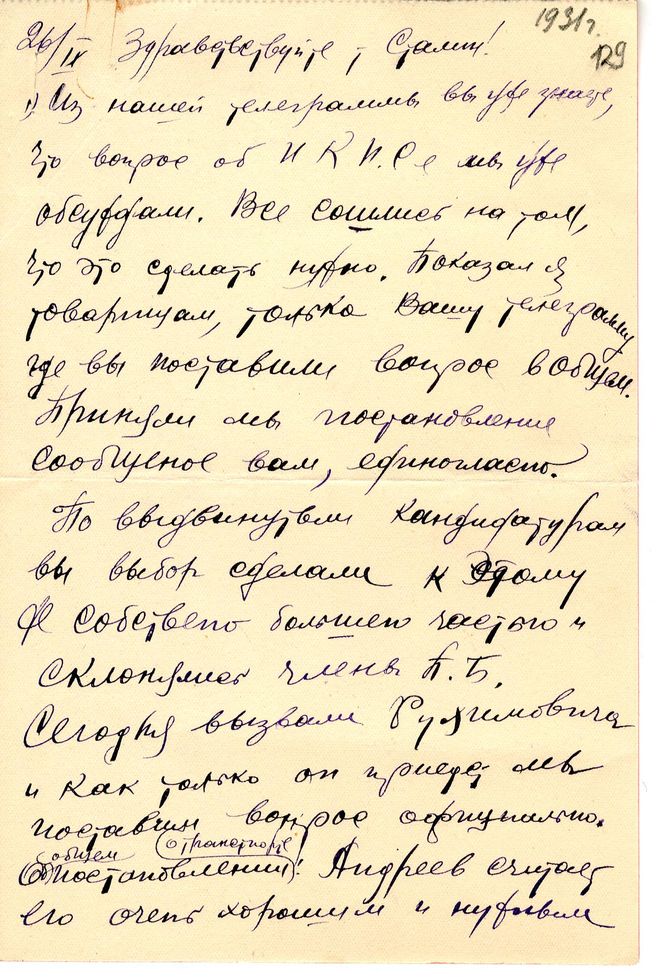 1931 г.
129
26/IX Здравствуйте т. Сталин!
1) Из нашей телеграммы вы уже знаете,
что вопрос об НКПСе мы уже
обсуждали. Все сошлись на том,
что это сделать нужно. Показал я
товарищам, только Вашу телеграмму
где вы поставили вопрос в общем.
Приняли мы постановление
сообщеное вам, единогласно.
По выдвинутым кандидатурам
вы выбор сделали к этому
же собствено большею частью и
склонялись члены П.Б.
Сегодня вызвали Рухимовича
и как только он приедет мы
поставим вопрос официально.
общем о транспорте
Об постановлении! Андреев считает
его очень хорошим и нужным